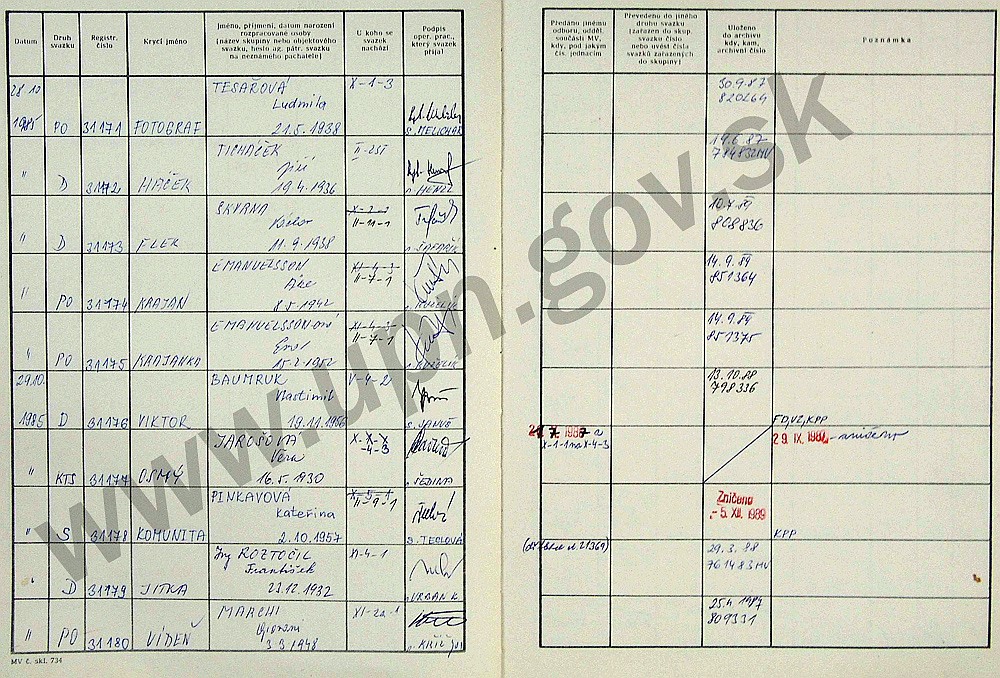 Datum
Druh svazku
Registr. číslo
Krycí jméno
Jméno, příjmení, datum narození rozpracované osoby (název skupiny nebo objektového svazku, heslo ag. pátr. svazku na neznámého pachatele)
U koho se svazek nachází
Podpis oper. prac., který svazek přijal
Předáno jinému odboru, odděl. součásti MV, kdy, pod jakým čís. jednacím
Převedeno do jiného druhu svazku (zařazen do skup. svazku číslo nebo uvést čísla svazků zařazených do skupiny)
Uloženo do archivu kdy, kam, archivní číslo
Poznámka
28.10 TESAŘOVÁ X-1-3 30.9.87
Ludmila 820264
1985 PO 31171 FOTOGRAF 21.5.1938 S. MELICHAR
TICHÁČEK 19.6.87
Jiří 784832MV
" D 31172 HÁČEK 19.4.1936
ŠKVRNA 10.7.89
II-11-1 808836
" D 31173 FLEK 11.9.1938 ŠAFAŘÍK
EMANUELSSON XI-4-3 14.9.89
Åke II-7-1 851364
" PO 31174 KRAJAN 8.5.1942
EMANUELSSONOVÁ XI-4-3 14.9.89
II-7-1 851375
" PO 31175 KRAJANKA 15.2.1952
29.10. BAUMRUK V-4-2 13.10.88
Vlastimil 798336
1985 D 31176 VIKTOR 19.11.1956 FO,VZ,KPP
JAROŠOVÁ X-X-X
Věra -4-3 X-1-1 na X-4-3 29. IX. 1987 - zničeno
" KTS 31177 OSMÝ 16.5.1930 ŠEDINA
PINKAVOVÁ X-5-1 Zničeno
Kateřina II-9-1 - 5. XII. 1989
" S 31178 KOMUNITA 2.10.1957 S. TECLOVÁ KPP
Ing ROZTOČIL XI-4-1 29.3.88
František 761483MV
" D 31179 JITKA 23.12.1932 URBAN K
MARCHI XI-2a-1 25.4.1987
809331
" PO 31180 VÍDEŇ 3.3.1948
MV č. skl. 734
www.upn.gov.sk